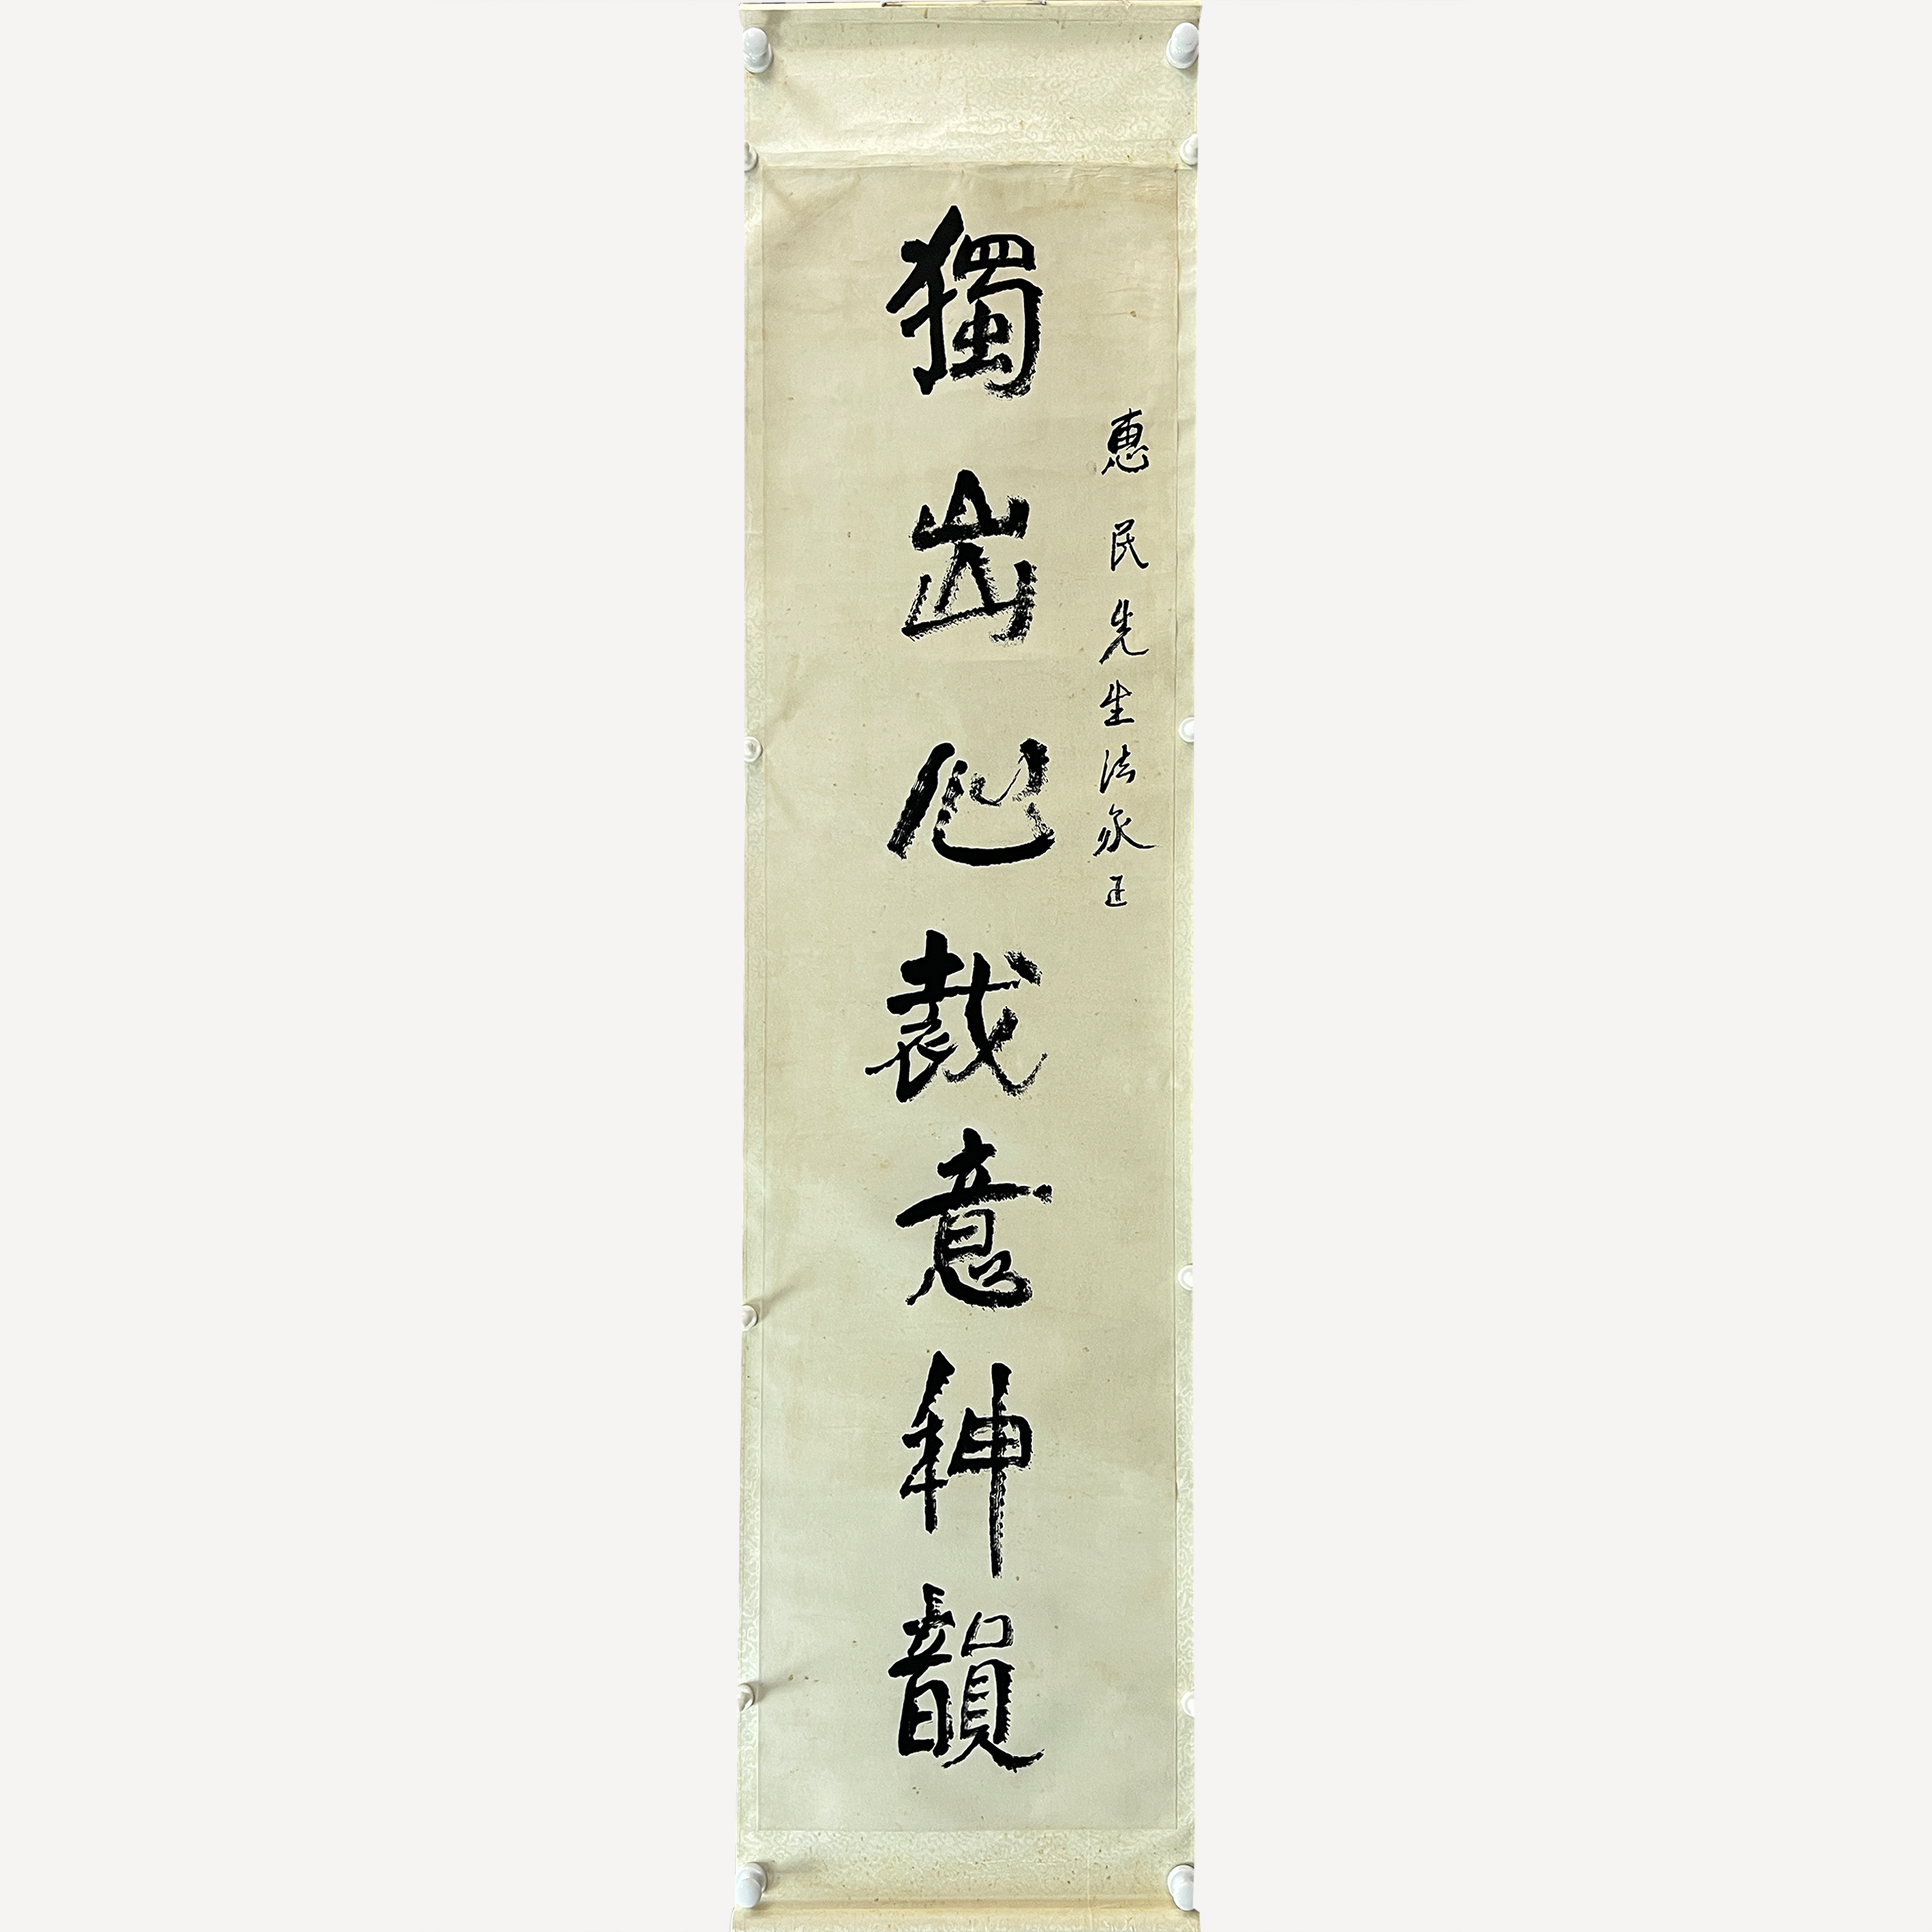 惠民先生法家正
獨出心裁意神韻